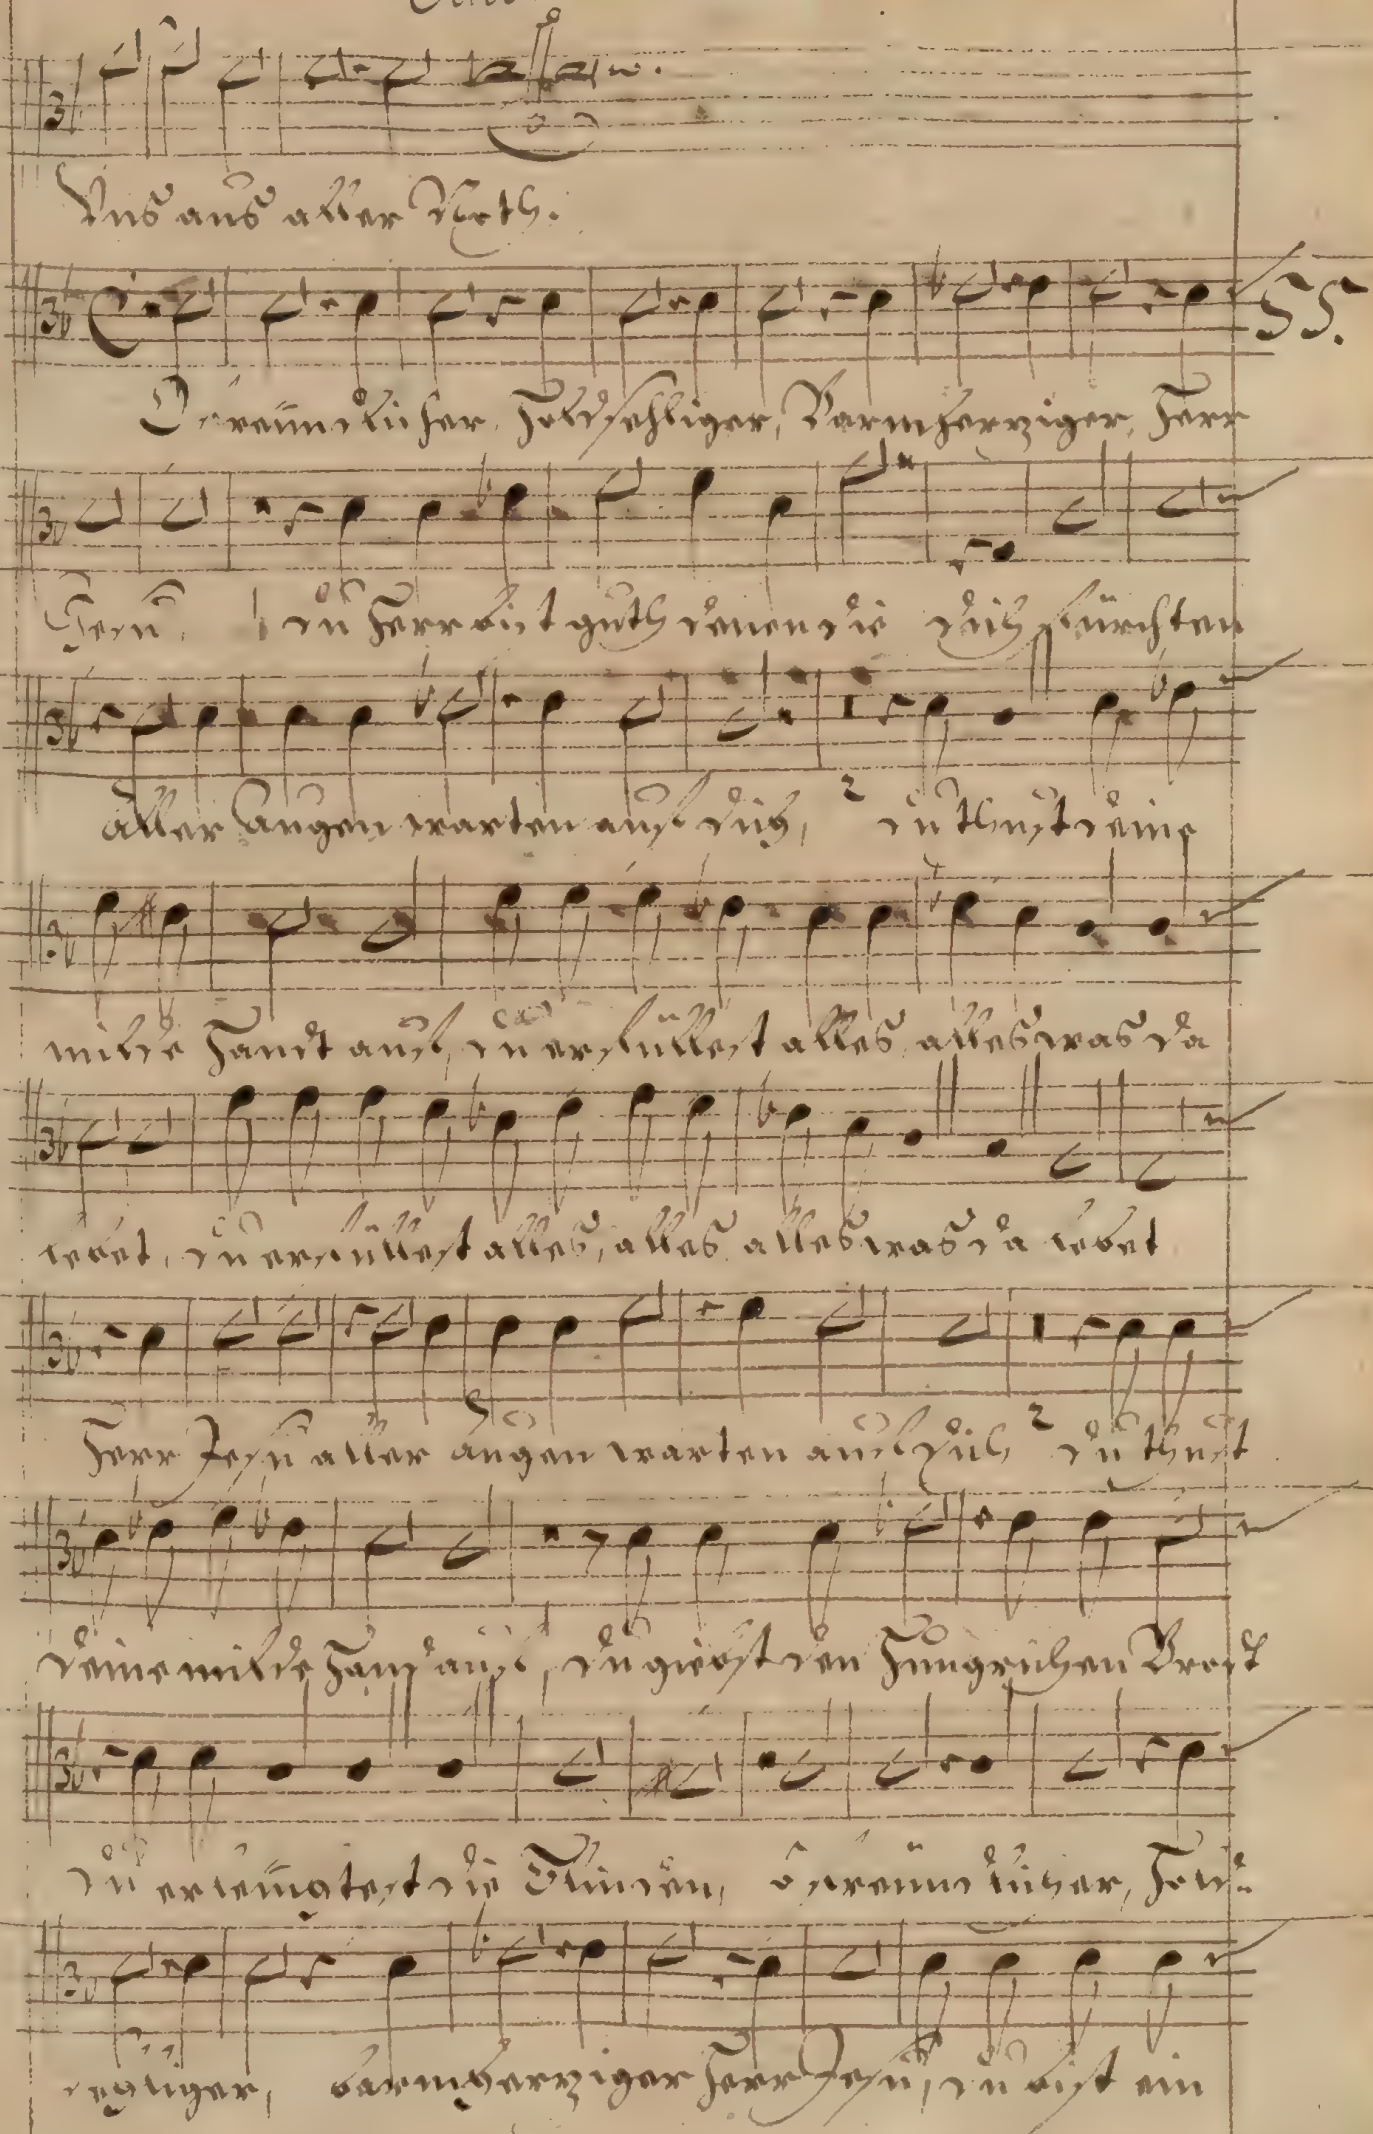 Vns aus aller Noth.
55.
O freundlicher, Holdsehliger, Barmherziger, Herr
Jesu, du Herr bist guth denen die dich fürchten
Aller Augen warten auf dich, du thust deine
milde Handt auf, du erfüllest alles, alles was da
lebet, du erfüllest alles, alles, alles was da lebet
Herr Jesu aller augen warten auf dich du thust
deine milde Hand auf, du giebst den Hungrichen Brodt
du die Blinden, o freundlicher, Hold-
sehliger, barmherziger Herr Jesu, du bist ein